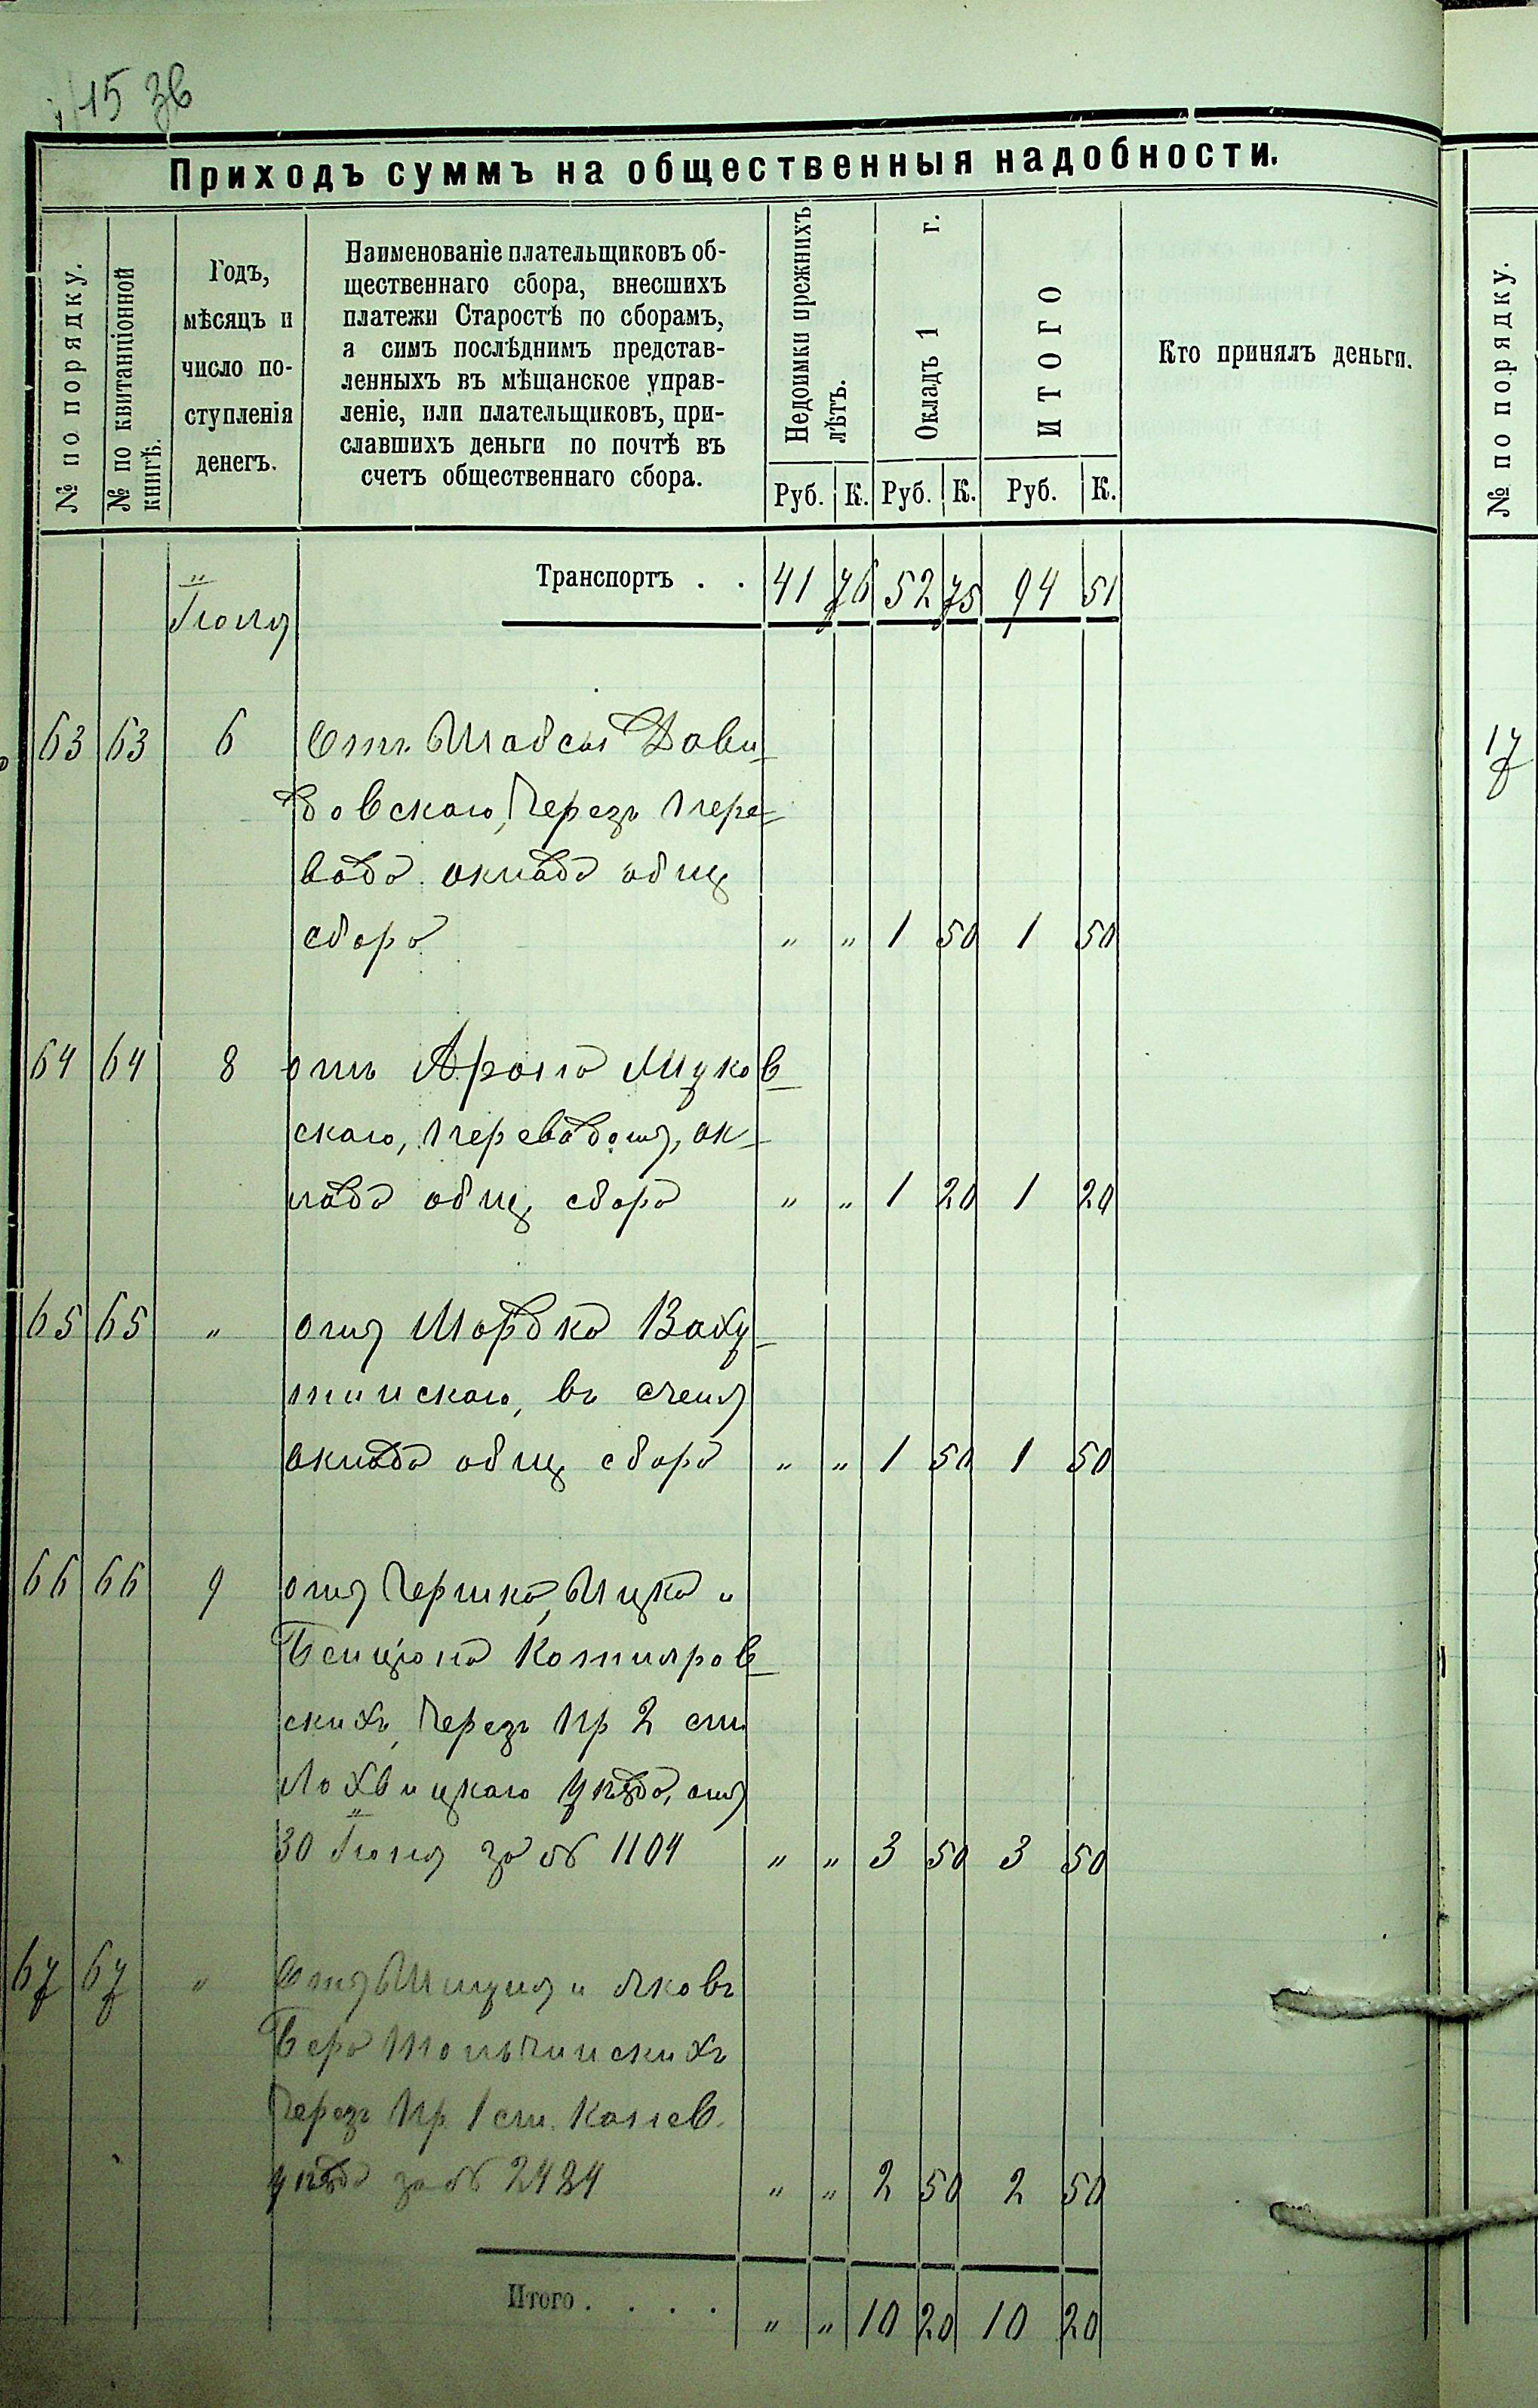 15 зв
Приходъ суммъ на общественныя надобности.
№ по порядку.
№ по квитанціонной книгѣ.
Годъ,
мѣсяцъ и
число по-
ступленія
денегъ.
Наименованіе плательщиковъ об-
щественнаго сбора, внесшихъ
платежи Старостѣ по сборамъ,
а симъ послѣднимъ представ-
ленныхъ въ мѣщанское управ-
леніе, или плательщиковъ, при-
славшихъ деньги по почтѣ въ
счетъ общественнаго сбора.
Недоимки прежнихъ лѣтъ.
Окладъ 1 г.
ИТОГО
Кто принялъ деньги.
Руб. К. Руб. К. Руб. К.
Транспортъ . . 41 76 52 75 94 51
63 63 6 Отъ Шабсы Дави-
довскаго, Черезъ пере-
вода оклада общ
сбора " " 1 50 1 50
64 64 8 отъ Арона
скаго, переводомъ, ок-
лада общ сбора " " 1 20 1 20
65 65 " отъ МордкаВаху-
тинскаго, въ счетъ
оклада общ сбора " " 1 50 1 50
66 66 9 отъ Гершка, Ицка и
Бенціона Котляров-
скихъ, Черезъ Пр 2 ст.
Лохвицкаго уѣзда, отъ
30 за № 1104 " " 3 50 3 50
67 67 " Отъ и Яковъ
Бера Топчинскихъ
Черезъ Пр. 1 ст. Канев.
уѣзда за № 2484 " " 2 50 2 50
Итого . . . . " " 10 20 10 20
№ по порядку.
17